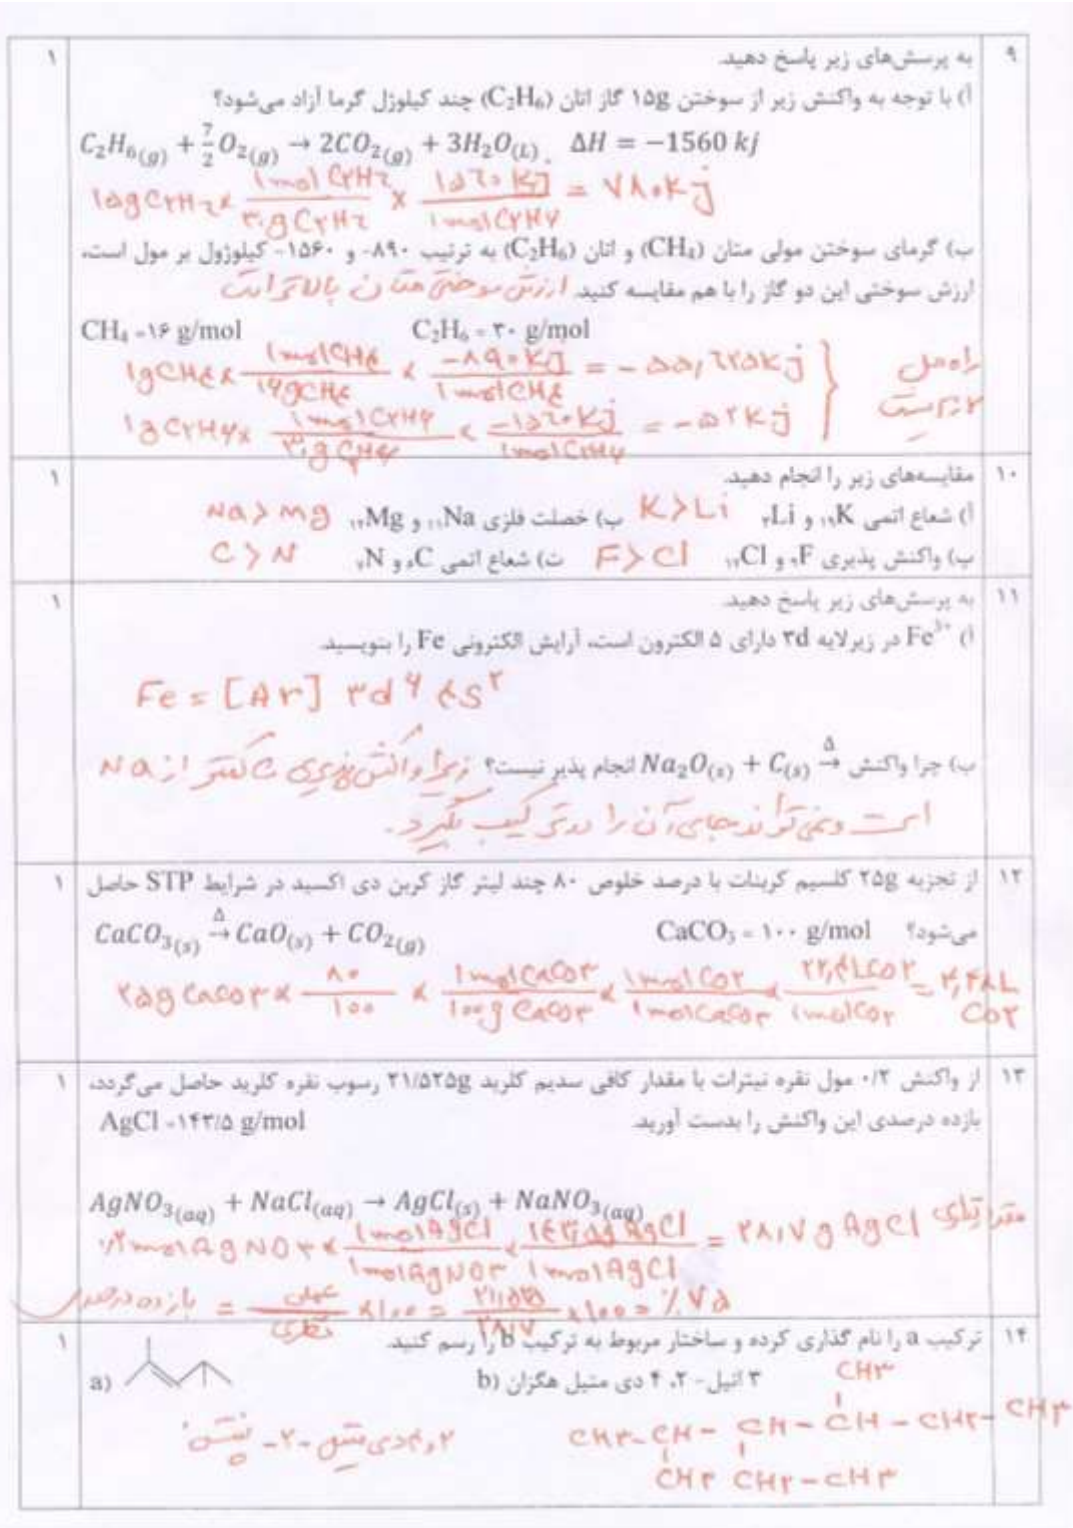 ۹ به پرسش‌های زیر پاسخ دهید. ۱
أ) با توجه به واکنش زیر از سوختن ۱۵g گاز اتان (C₂H₆) چند کیلوژل گرما آزاد می‌شود؟
C₂H₆(g) + 7/2 O₂(g) → 2CO₂(g) + 3H₂O(L). ΔH = −1560 kj
۱۵g C۲H۶ × ۱mol C۲H۶ / ۳۰g C۲H۶ × ۱۵۶۰ kj / ۱mol C۲H۶ = ۷۸۰ kj
ب) گرمای سوختن مولی متان (CH₄) و اتان (C₂H₆) به ترتیب ۸۹۰- و ۱۵۶۰- کیلوزول بر مول است،
ارزش سوختی این دو گاز را با هم مقایسه کنید. ارزش سوختی متان بالاتر است
CH₄ = ۱۶ g/mol C₂H₆ = ۳۰ g/mol
۱g CH۴ × ۱mol CH۴ / ۱۶g CH۴ × −۸۹۰ kj / ۱mol CH۴ = −۵۵,۶۲۵ kj } راه حل
۱g C۲H۶ × ۱mol C۲H۶ / ۳۰g C۲H۶ × −۱۵۶۰ kj / ۱mol C۲H۶ = −۵۲ kj
۱۰ مقایسه‌های زیر را انجام دهید. ۱
أ) شعاع اتمی ₁₉K و ₃Li K > Li ب) خصلت فلزی ₁₁Na و ₁₂Mg Na > Mg
پ) واکنش پذیری ₉F و ₁₇Cl F > Cl ت) شعاع اتمی ₆C و ₇N C > N
۱۱ به پرسش‌های زیر پاسخ دهید. ۱
أ) Fe³⁺ در زیرلایه ۳d دارای ۵ الکترون است، آرایش الکترونی Fe را بنویسید.
Fe = [Ar] ۳d۶ ۴s۲
ب) چرا واکنش Na₂O(s) + C(s) →Δ انجام پذیر نیست؟ زیرا واکنش پذیری C کمتر از Na
است و نمی تواند جای آن را در ترکیب بگیرد.
۱۲ از تجزیه ۲۵g کلسیم کربنات با درصد خلوص ۸۰ چند لیتر گاز کربن دی اکسید در شرایط STP حاصل ۱
می‌شود؟ CaCO₃ = ۱۰۰ g/mol CaCO₃(s) →Δ CaO(s) + CO₂(g)
۲۵g CaCO۳ × ۸۰ / ۱۰۰ × ۱mol CaCO۳ / ۱۰۰g CaCO۳ × ۱mol CO۲ / ۱mol CaCO۳ × ۲۲,۴L CO۲ / ۱mol CO۲ = ۴,۴۸L
CO۲
۱۳ از واکنش ۰/۲ مول نقره نیترات با مقدار کافی سدیم کلرید ۲۱/۵۲۵g رسوب نقره کلرید حاصل می‌گردد، ۱
بازده درصدی این واکنش را بدست آورید. AgCl = ۱۴۳/۵ g/mol
AgNO₃(aq) + NaCl(aq) → AgCl(s) + NaNO₃(aq)
۰/۲ mol AgNO۳ × ۱mol AgCl / ۱mol AgNO۳ × ۱۴۳,۵g AgCl / ۱mol AgCl = ۲۸,۷ g AgCl مقدار نظری
بازده درصدی = عملی / نظری × ۱۰۰ = ۲۱,۵۲۵ / ۲۸,۷ × ۱۰۰ = ٪ ۷۵
۱۴ ترکیب a را نام گذاری کرده و ساختار مربوط به ترکیب b را رسم کنید. ۱
a) ۳ اتیل- ۲، ۴ دی متیل هگزان (b
CH۳
CH۳-CH - CH - CH - CH۲- CH۳
CH۳ CH۲-CH۳
۲و۴دی متیل -۲- پنتن